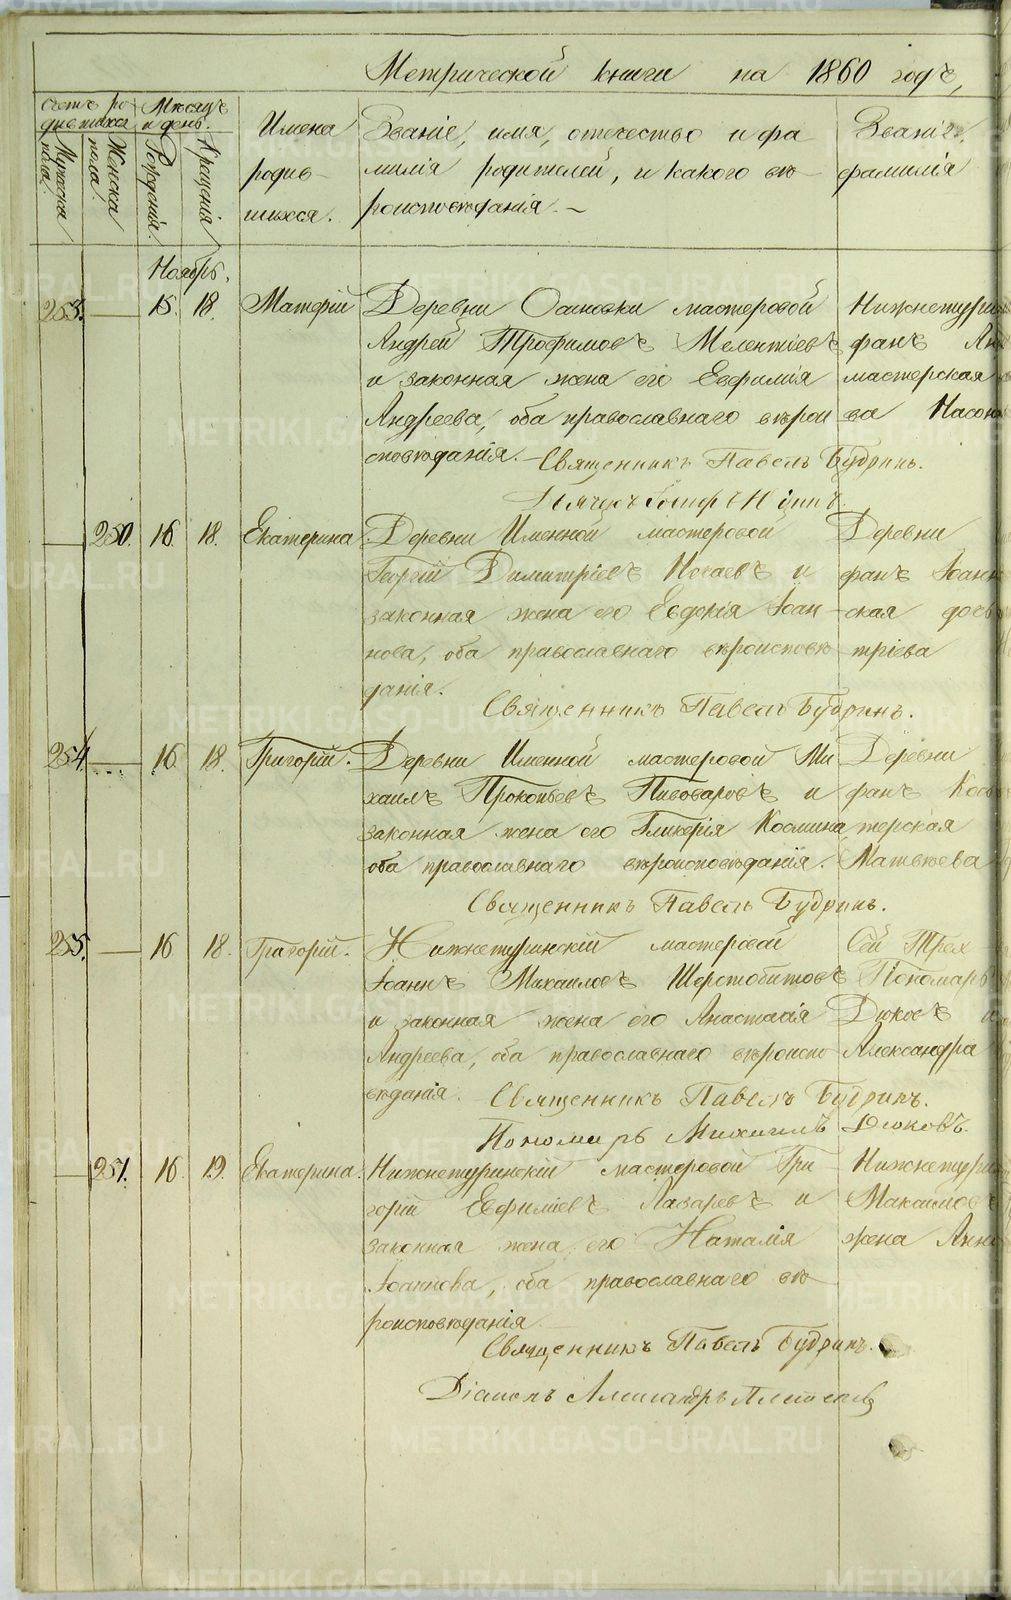 Метрической книги на 1860 годъ,
Счетъ ро-
дившихся
Мѣсяцъ
и день.
Мужеска
пола.
Женска
пола.
Рожденія.
Крещенія
Имена
родив-
шихся.
Званіе, имя, отечество и фа-
милія родителей, и какого вѣ-
роисповѣданія.
Званіе,
фамилія
Ноябрь.
253. 15. 18. Матѳій
Деревни Осиновки мастеровой
Андрей Трофимовъ Мелентіевъ
и законная жена его Евфимія
Андреева, оба православнаго вѣрои
сповѣданія. Священникъ Павелъ Будринъ.
Нижнетури
фанъ Ан
мастерская
ва Насон
250. 16. 18. Екатерина.
Деревни Именной мастеровой
Георгій Димитріевъ Ногаевъ и
законная жена его Евдокія Іоан-
нова, оба православнаго вѣроисповѣ-
данія.
Священникъ Павелъ Будринъ.
Деревни
фанъ Іоанн
ская дочь
тріева
254. 16. 18. Григорій.
Деревни Именной мастеровой Ми
хаилъ Прокопьевъ Пивоваровъ и
законная жена его Гликерія Космина,
оба православнаго вѣроисповѣданія.
Священникъ Павелъ Будринъ.
Деревни
фанъ Косм
терская
Матвѣева
255. 16 18. Григорій.
Нижнетуринскій мастеровой
Іоаннъ Михаиловъ Шерстобитовъ
и законная жена его Анастасія
Андреева, оба православнаго вѣроиспо
вѣданія. Священникъ Павелъ Будринъ.
Пономарь Михаилъ Дюковъ.
Сей Трех
Пономарь
Дюковъ и
Александра
251. 16 19. Екатерина.
Нижнетуринскій мастеровой Гри-
горій Евфиміевъ Лазаревъ и
законная жена его Наталія
Іоаннова, оба православнаго вѣ-
роисповѣданія.
Священникъ Павелъ Будринъ.
Діаконъ Александръ
Нижнетури
Максимовъ
жена Анн
METRIKI.GASO-URAL.RU